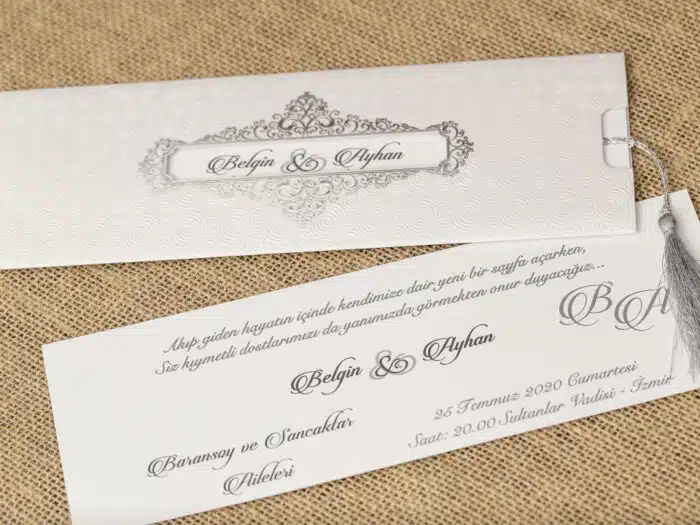 Belgin & Ayhan
Akıp giden hayatın içinde kendimize dair yeni bir sayfa açarken,
Siz kıymetli dostlarımızı da yanımızda görmekten onur duyacağız...
B A
Belgin & Ayhan
25 Temmuz 2020 Cumartesi
Saat: 20.00 Sultanlar Vadisi - İzmir
Baransoy ve Sancaklar
Aileleri